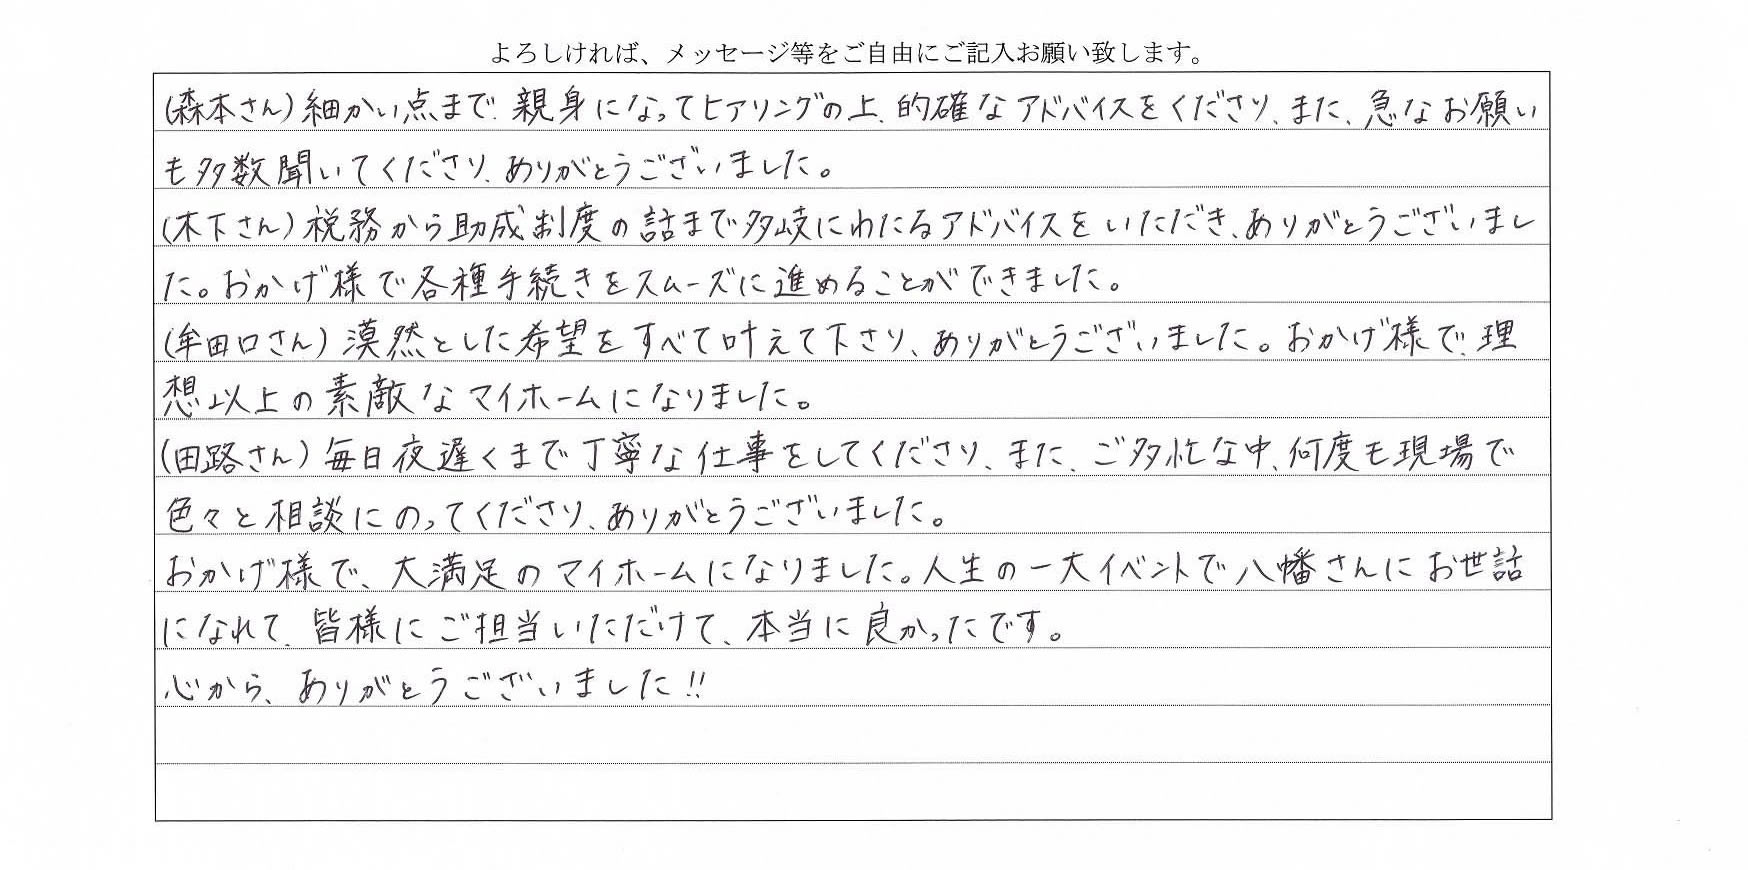 よろしければ、メッセージ等をご自由にご記入お願い致します。
(森本さん)細かい点まで、親身になってヒアリングの上、的確なアドバイスをくださり、また、急なお願い
も多数聞いてくださり、ありがとうございました。
(木下さん)税務から助成制度の話まで多岐にわたるアドバイスをいただき、ありがとうございまし
た。おかげ様で各種手続きをスムーズに進めることができました。
(牟田口さん)漠然とした希望をすべて叶えて下さり、ありがとうございました。おかげ様で、理
想以上の素敵なマイホームになりました。
(田路さん)毎日夜遅くまで丁寧な仕事をしてくださり、また、ご多忙な中、何度も現場で
色々と相談にのってくださり、ありがとうございました。
おかげ様で、大満足のマイホームになりました。人生の一大イベントで八幡さんにお世話
になれて、皆様にご担当いただけて、本当に良かったです。
心から、ありがとうございました!!